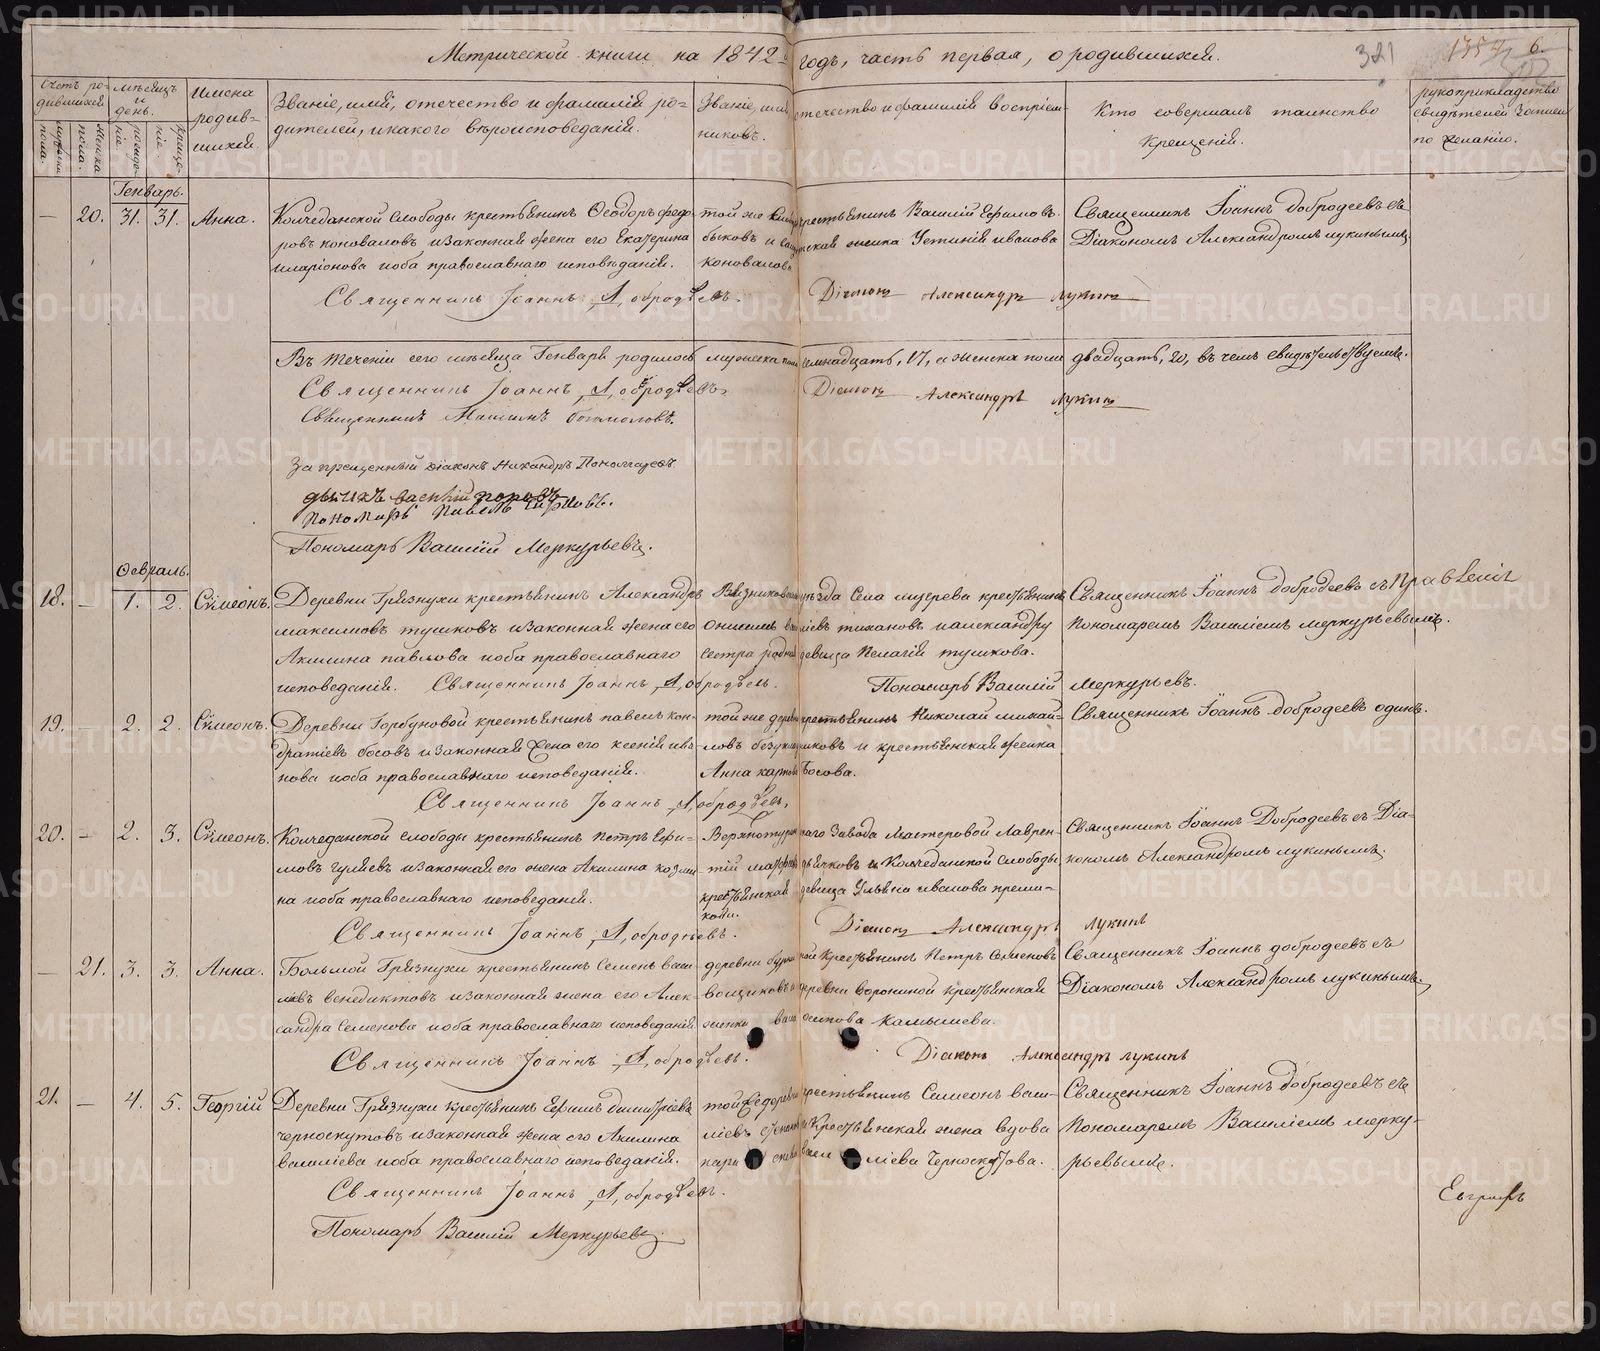 Метрической книги на 1842й годъ, часть первая, о родившихся.
321
6.
Счетъ ро-
дившихся
мужеска пола.
женска пола.
мѣсяцъ и день.
рожденіе.
крещеніе.
Имена
родив-
шихся.
Званіе, имя, отечество и фамилія ро-
дителей, и какого вѣроисповеданія.
Званіе, имя отечество и фамилія воспріем-
никовъ.
Кто совершалъ таинство
Крещенія.
рукоприкладство
свидѣтелей записи
по желанію.
Генварь.
— 20. 31. 31. Анна.
Колчеданской слободы крестьянинъ Ѳеодоръ Федо-
ровъ коноваловъ и законная жена его Екатерина
иларіонова иоба православнаго исповѣданія.
той же слободы крестьянинъ Василій Ефимовъ
быковъ и женка Устинія иванова
коновалова
Священникъ Іоаннъ добродеевъ съ
Діакономъ Александромъ лукинымъ.
Священникъ Іоаннъ Добродѣевъ.
Діаконъ Александръ Лукинъ
Въ теченіи сего мѣсяца Генваря родилось мужска пола семнадцать, 17, а женска пола двадцать, 20, въ чемъ свидѣтельствуемъ.
Священникъ Іоаннъ Добродѣевъ
Діаконъ Александръ Лукинъ
Священникъ Максимъ богомоловъ.
За крещенный діаконъ Никандръ Пономаревъ
дьячекъ василій поповъ
Пономарь Павелъ
Пономарь Василій Меркурьевъ.
Февраль.
18. — 1. 2. Сѵмеонъ.
Деревни Грязнухи крестьянинъ Александръ
максимовъ тушковъ и законная жена его
Акилина павлова иоба православнаго
исповеданія. Священникъ Іоаннъ Добродѣевъ.
Вязниковскаго уѣзда Села мугрева крестьянинъ
тихановъ и александру
сестра родная девица Пелагія тушкова.
Пономарь Василій Меркурьевъ.
Священникъ Іоаннъ добродеевъ съ
Пономаремъ Василіемъ меркурьевымъ.
19. — 2. 2. Сѵмеонъ.
Деревни Горбуновой крестьянинъ павелъ кон-
дратіевъ босовъ и законная жена его ксенія ива-
нова иоба православнаго исповеданія.
той же деревни крестьянинъ Николай михай-
ловъ и крестьянская женка
Анна карпова Босова.
Священникъ Іоаннъ добродеевъ одинъ.
Священникъ Іоаннъ Добродѣевъ.
20. — 2. 3. Сѵмеонъ.
Колчеданской слободы крестьянинъ петръ Ефи-
мовъ гуляевъ и законная его жена Акилина козми-
на иоба православнаго исповеданія.
Верхнотуринскаго завода Мастеровой Лаврен-
тій и Колчеданской слободы
крестьянская девица Ульяна иванова
Священникъ Іоаннъ Добродеевъ съ Діа-
кономъ Александромъ лукинымъ.
Священникъ Іоаннъ Добродѣевъ.
Діаконъ Александръ Лукинъ
— 21. 3. 3. Анна.
Большой Грязнухи крестьянинъ Семенъ васи-
льевъ венедиктовъ и законная жена его Алек-
сандра Семенова иоба православнаго исповеданія
деревни крестьянинъ Петръ Семеновъ
деревни ворониной крестьянская
женка осипова камышева.
Священникъ Іоаннъ добродеевъ съ
Діакономъ Александромъ лукинымъ.
Священникъ Іоаннъ Добродѣевъ.
Діаконъ Александръ лукинъ
21. — 4. 5. Георгій
Деревни Грязнухи крестьянинъ Ефимъ димитріевъ
черноскутовъ и законная жена его Акилина
василіева иоба православнаго исповеданія.
той же деревни крестьянинъ Симеонъ васи-
ліевъ и крестьянская жена вдова
василіева Черноскутова.
Священникъ Іоаннъ добродеевъ съ
Пономаремъ Василіемъ мерку-
рьевымъ.
Священникъ Іоаннъ Добродѣевъ.
Пономарь Василій Меркурьевъ.
Евграфъ
METRIKI.GASO-URAL.RU